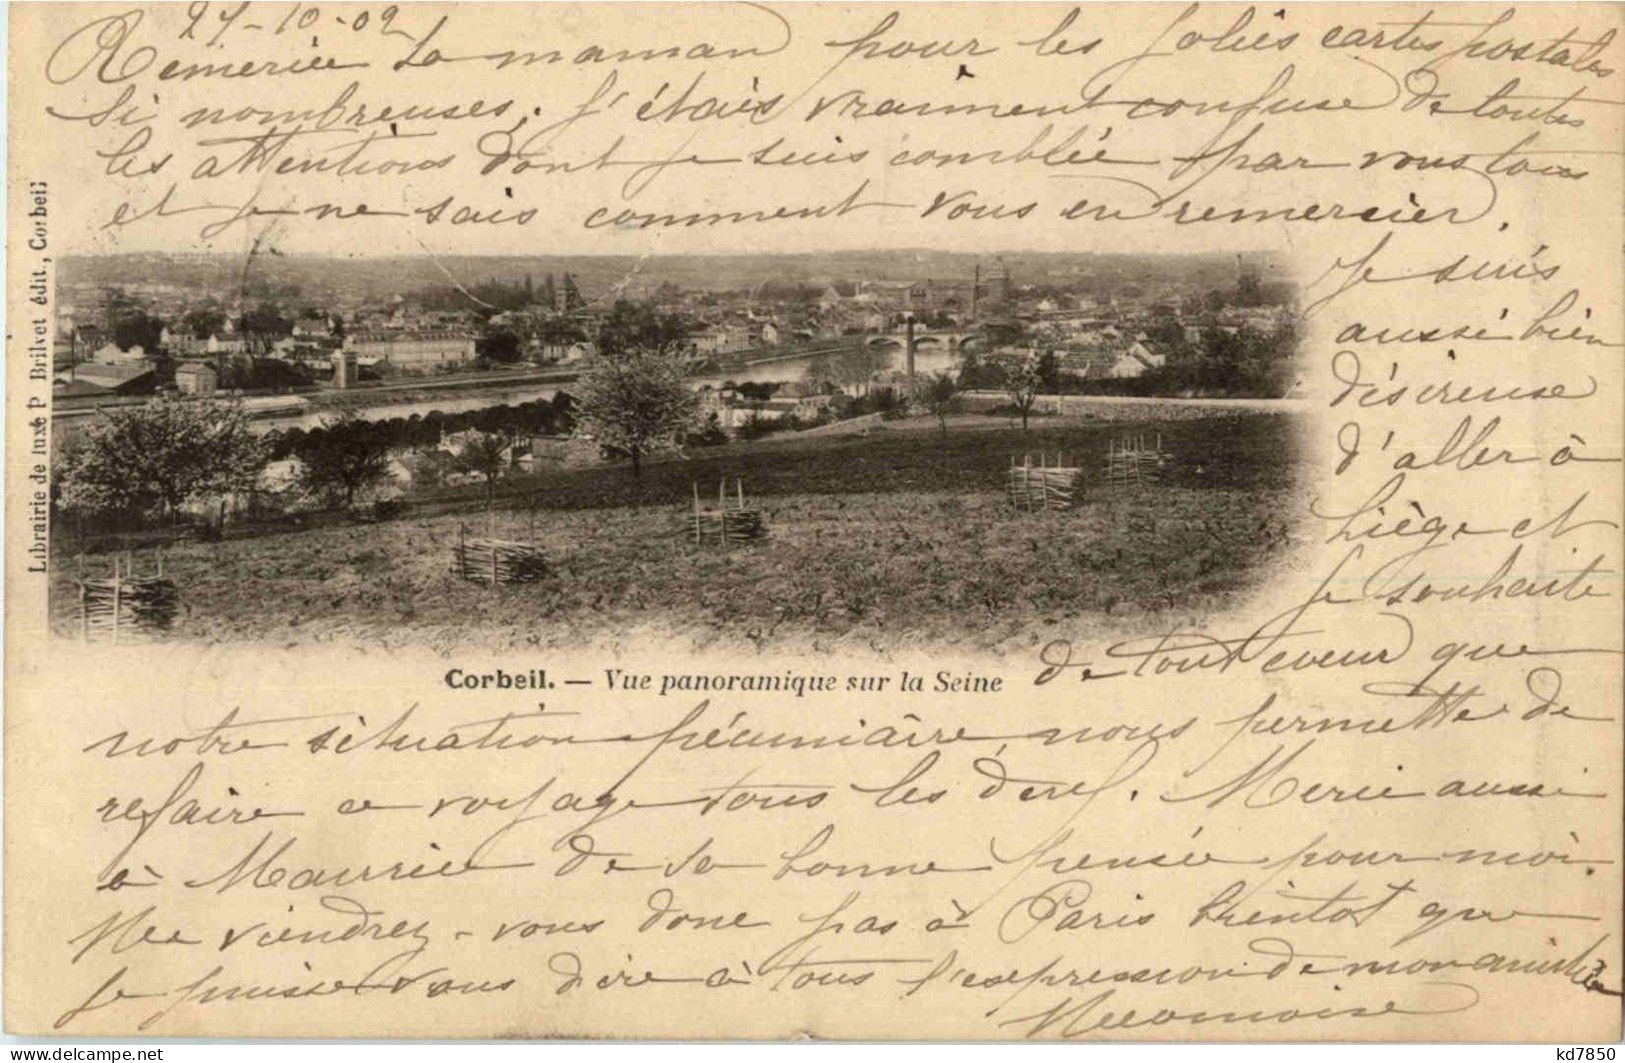 27-10-02
Remercie ta maman pour les jolies cartes postales
si nombreuses. J'étais vraiment confuse de toutes
les attentions dont je suis comblée par vous tous
et je ne sais comment vous en remercier.
Je suis
aussi bien
désireuse
d'aller à
Liège et
je souhaite
de tout coeur que
Librairie de luxe P Brilvet édit., Corbeil
Corbeil. — Vue panoramique sur la Seine
notre situation pécuniaire nous permette de
refaire ce voyage tous les deux. Merci aussi
à Maurice de sa bonne pensée pour moi.
Ne viendrez-vous donc pas à Paris bientot que
je puisse vous dire à tous l'expression de mon amitié
kd7850